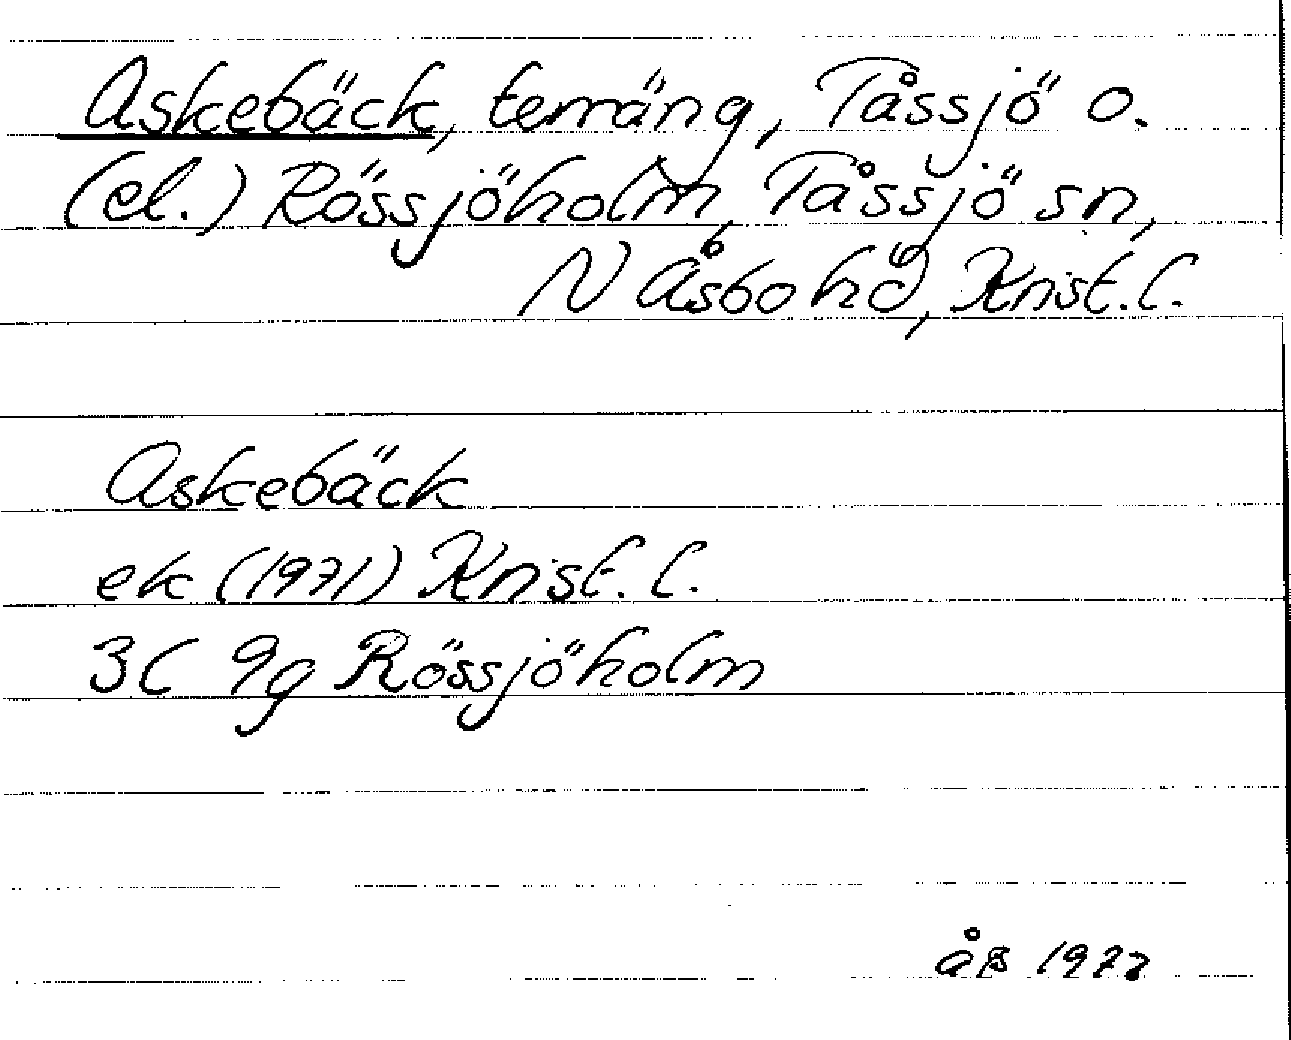 Askebäck, terräng, Tåssjö o.
(el.) Rössjöholm, Tåssjö sn,
N Åsbo hd, Krist. l.
Askebäck
ek (1971) Krist. l.
3C 9g Rössjöholm
åß 1977